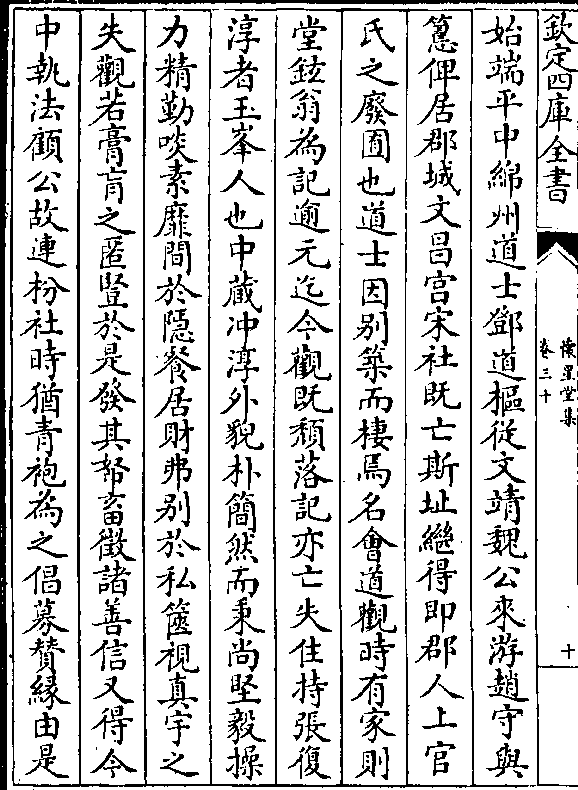 欽定四庫全書
懷星堂集
卷三十
十
始端平中綿州道士鄧道樞從文靖魏公來游趙守與
𥲅俾居郡城文昌宫宋社既亡斯址繼得即郡人上官
氏之廢圃也道士因别築而棲焉名會道觀時有家則
堂鉉翁為記逾元迄今觀既頹落記亦亡失住持張復
淳者玉峯人也中藏冲淳外貌朴簡然而秉尚堅毅操
力精勤啖素靡間於隠餐居財弗别於私篋視真宇之
失觀若膏肓之匿豎於是發其帑畜徵諸善信又得今
中執法顧公故連枌社時猶青袍為之倡募賛緣由是